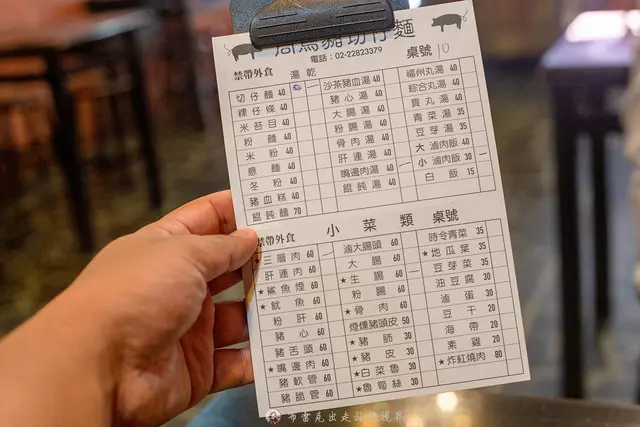 周烏豬切仔麵
電話：02-22823379 桌號 10
禁帶外食 湯 乾
切仔麵 40
粿仔條 40
米苔目 40
粉麵 40
米粉 40
意麵 40
冬粉 40
豬血糕 40
餛飩麵 70
沙茶豬血湯 40
豬心湯 40
大腸湯 40
粉腸湯 40
骨肉湯 40
肝連湯 40
嘴邊肉湯 40
餛飩湯 40
福州丸湯 40
綜合丸湯 40
貢丸湯 40
青菜湯 35
豆芽湯 35
大滷肉飯 40
小滷肉飯 30
白飯 15
禁帶外食 小菜類 桌號
★三層肉 60
肝連肉 60
★鯊魚煙 60
★魷魚 60
粉肝 60
豬心 60
豬舌頭 60
★嘴邊肉 60
豬軟管 60
豬脆管 60
滷大腸頭 60
大腸 60
★生腸 60
粉腸 60
★骨肉 60
煙燻豬頭皮 50
★豬肺 30
★豬皮 30
★白菜魯 30
★魯筍絲 30
時令青菜 35
★地瓜葉 35
豆芽菜 35
油豆腐 30
滷蛋 30
豆干 20
海帶 20
素雞 20
★炸紅燒肉 80
布雷克出走旅行視界